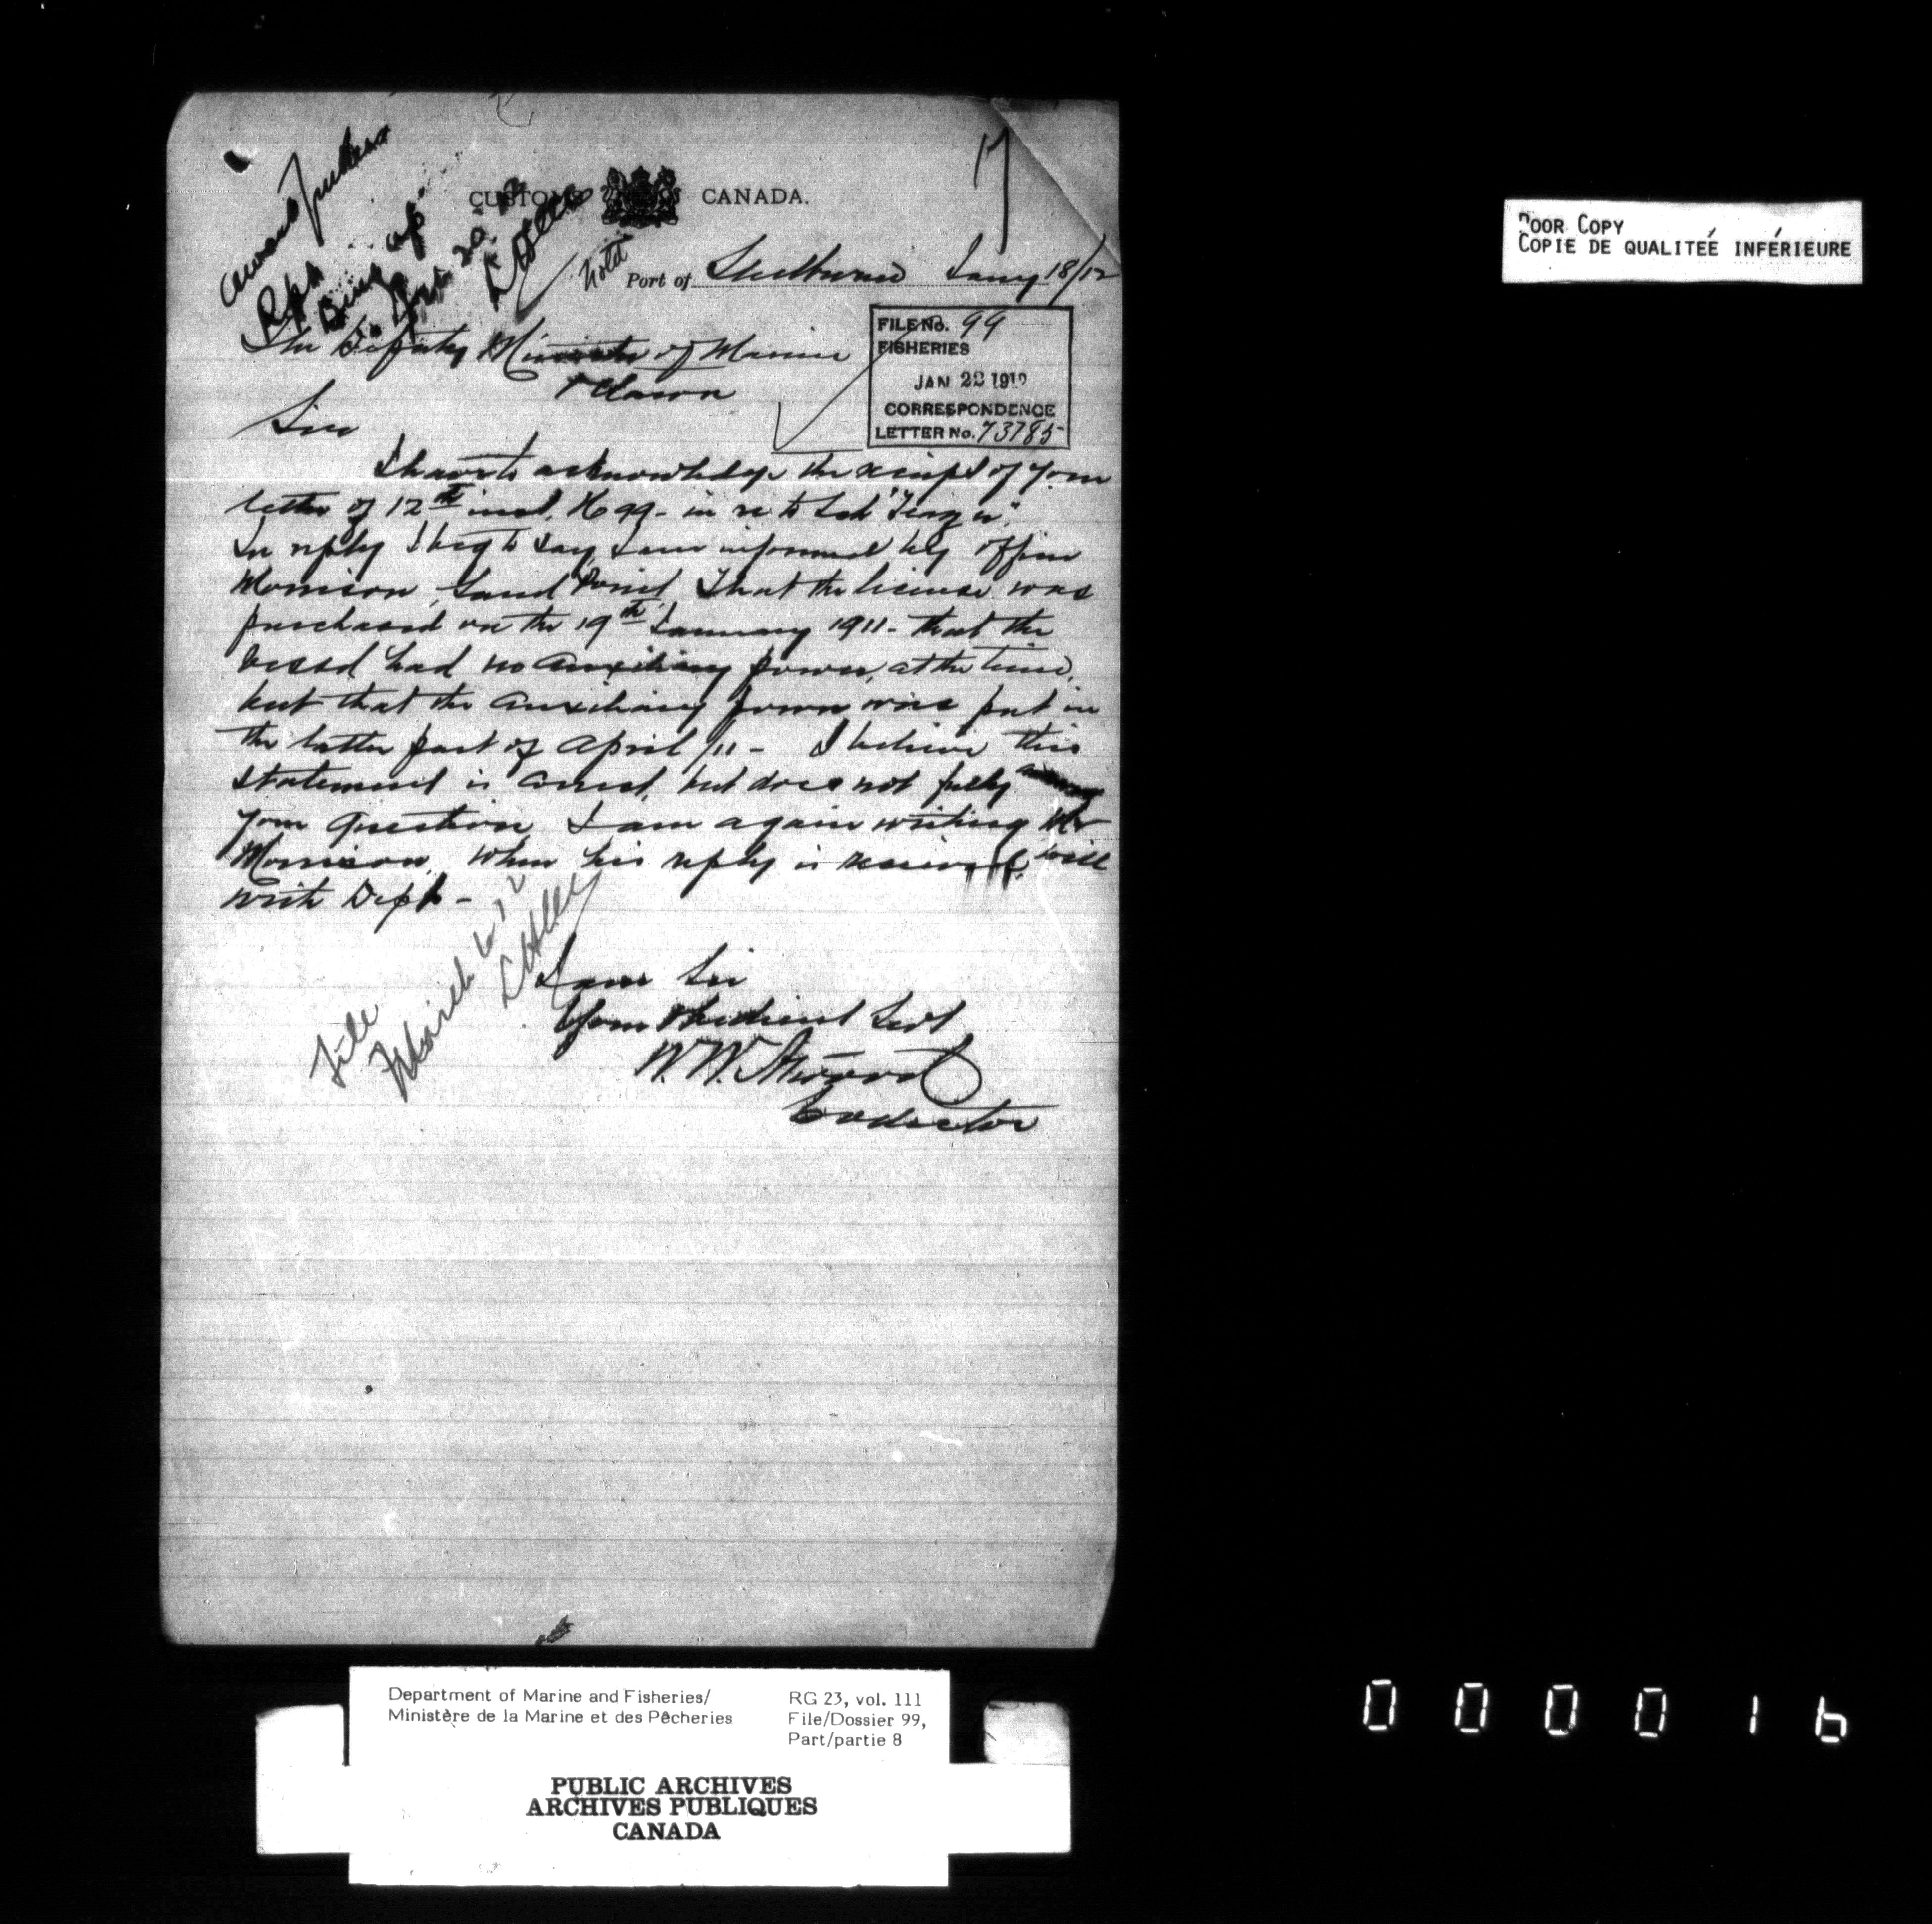 17
CUSTOMS CANADA.
hold
Port of Shelburne Jany 18/12
The Deputy Minister of Marine
Ottawa
FILE No. 99
FISHERIES
JAN 22 1912
CORRESPONDENCE
LETTER No. 73785
Sir
I have to acknowledge the receipt of your
letter of 12th inst. 99 - in re to Sch
In reply I beg to say I am informed by officer
Morrison, Sand Point that the license was
purchased on the 19th January 1911 - that the
vessel had no auxiliary power, at the time,
but that the auxiliary power was put in
the latter part of April /11 - I believe this
statement is correct, but does not fully answer
your question I am again writing Mr
Morrison, when his reply is received, will
write Dept -
File
March 6/12
I am Sir
Your Obedient Servt
W. W. Atwood
Collector
POOR COPY
COPIE DE QUALITEÉ INFÉRIEURE
Department of Marine and Fisheries/
Ministère de la Marine et des Pêcheries
RG 23, vol. 111
File/Dossier 99,
Part/partie 8
PUBLIC ARCHIVES
ARCHIVES PUBLIQUES
CANADA
000016